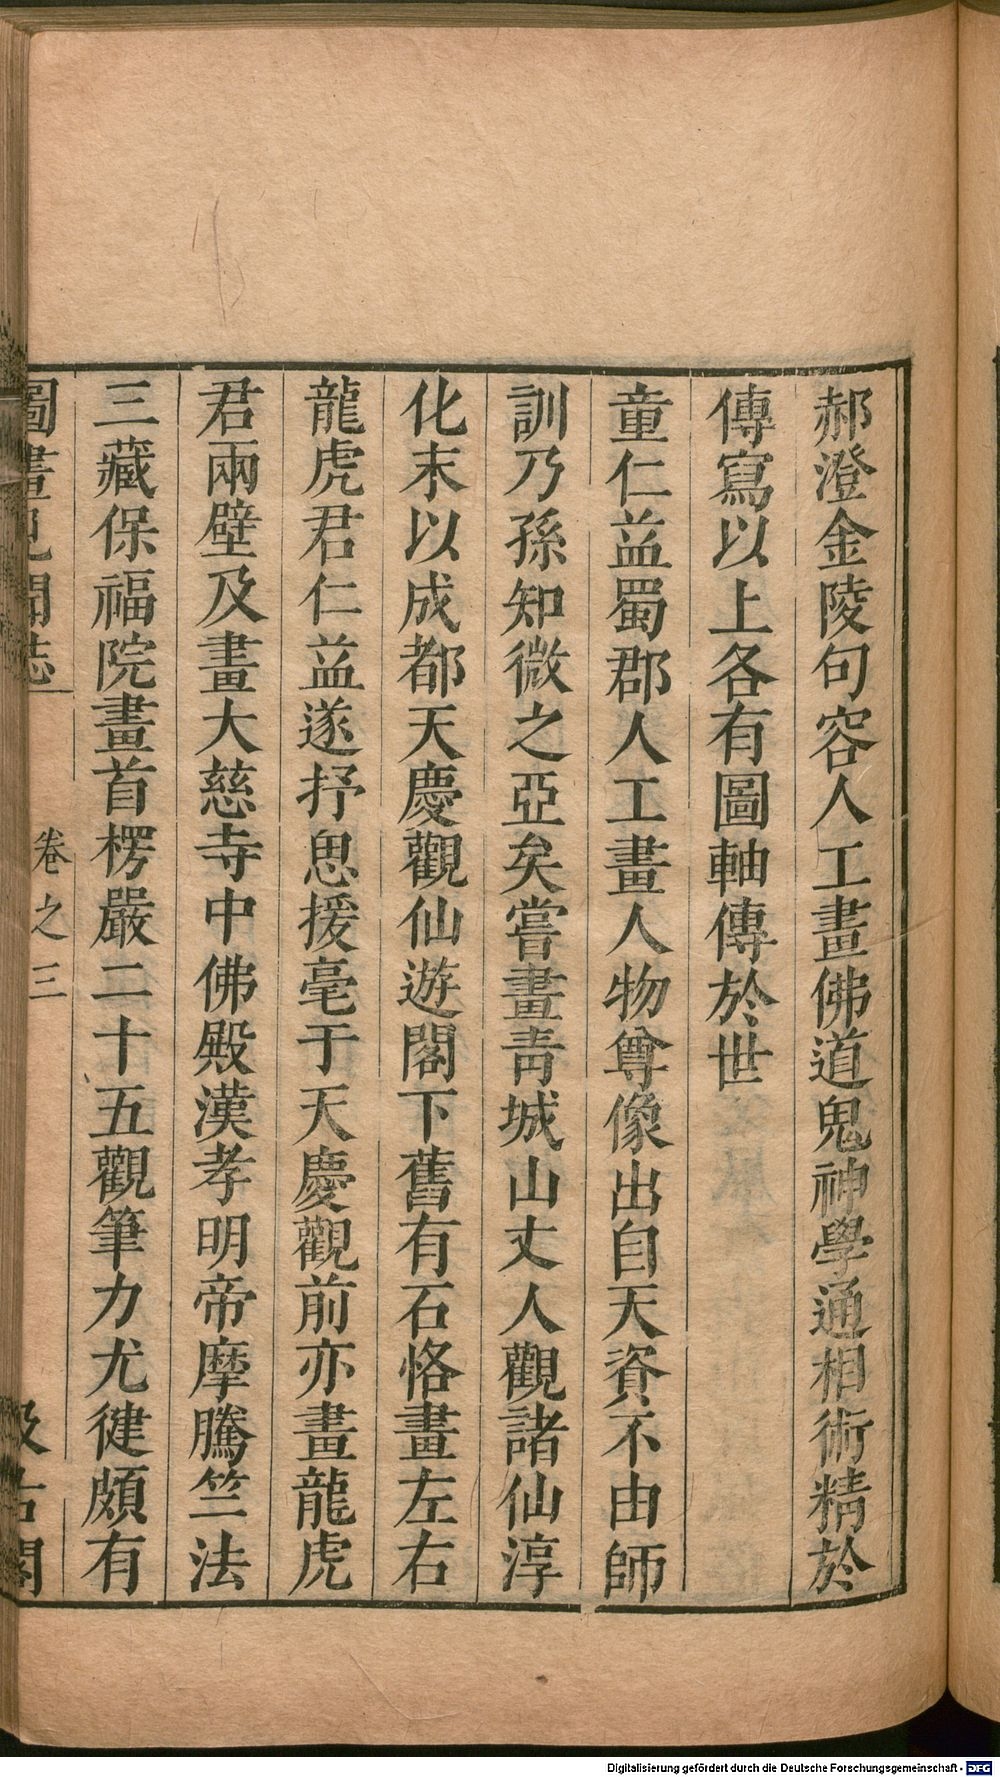 郝澄金陵句容人工畫佛道鬼神學通相術精於
傳寫以上各有圖軸傳於世
童仁益蜀郡人工畫人物尊像出自天資不由師
訓乃孫知微之亞矣嘗畫靑城山丈人觀諸仙淳
化末以成都天慶觀仙遊閣下舊有石恪畫左右
龍虎君仁益遂抒思援毫于天慶觀前亦畫龍虎
君兩壁及畫大慈寺中佛殿漢孝明帝摩騰竺法
三藏保福院畫首楞嚴二十五觀筆力尤健頗有
圖畫見聞志 卷之三 汲古閣
Digitalisierung gefördert durch die Deutsche Forschungsgemeinschaft - DFG